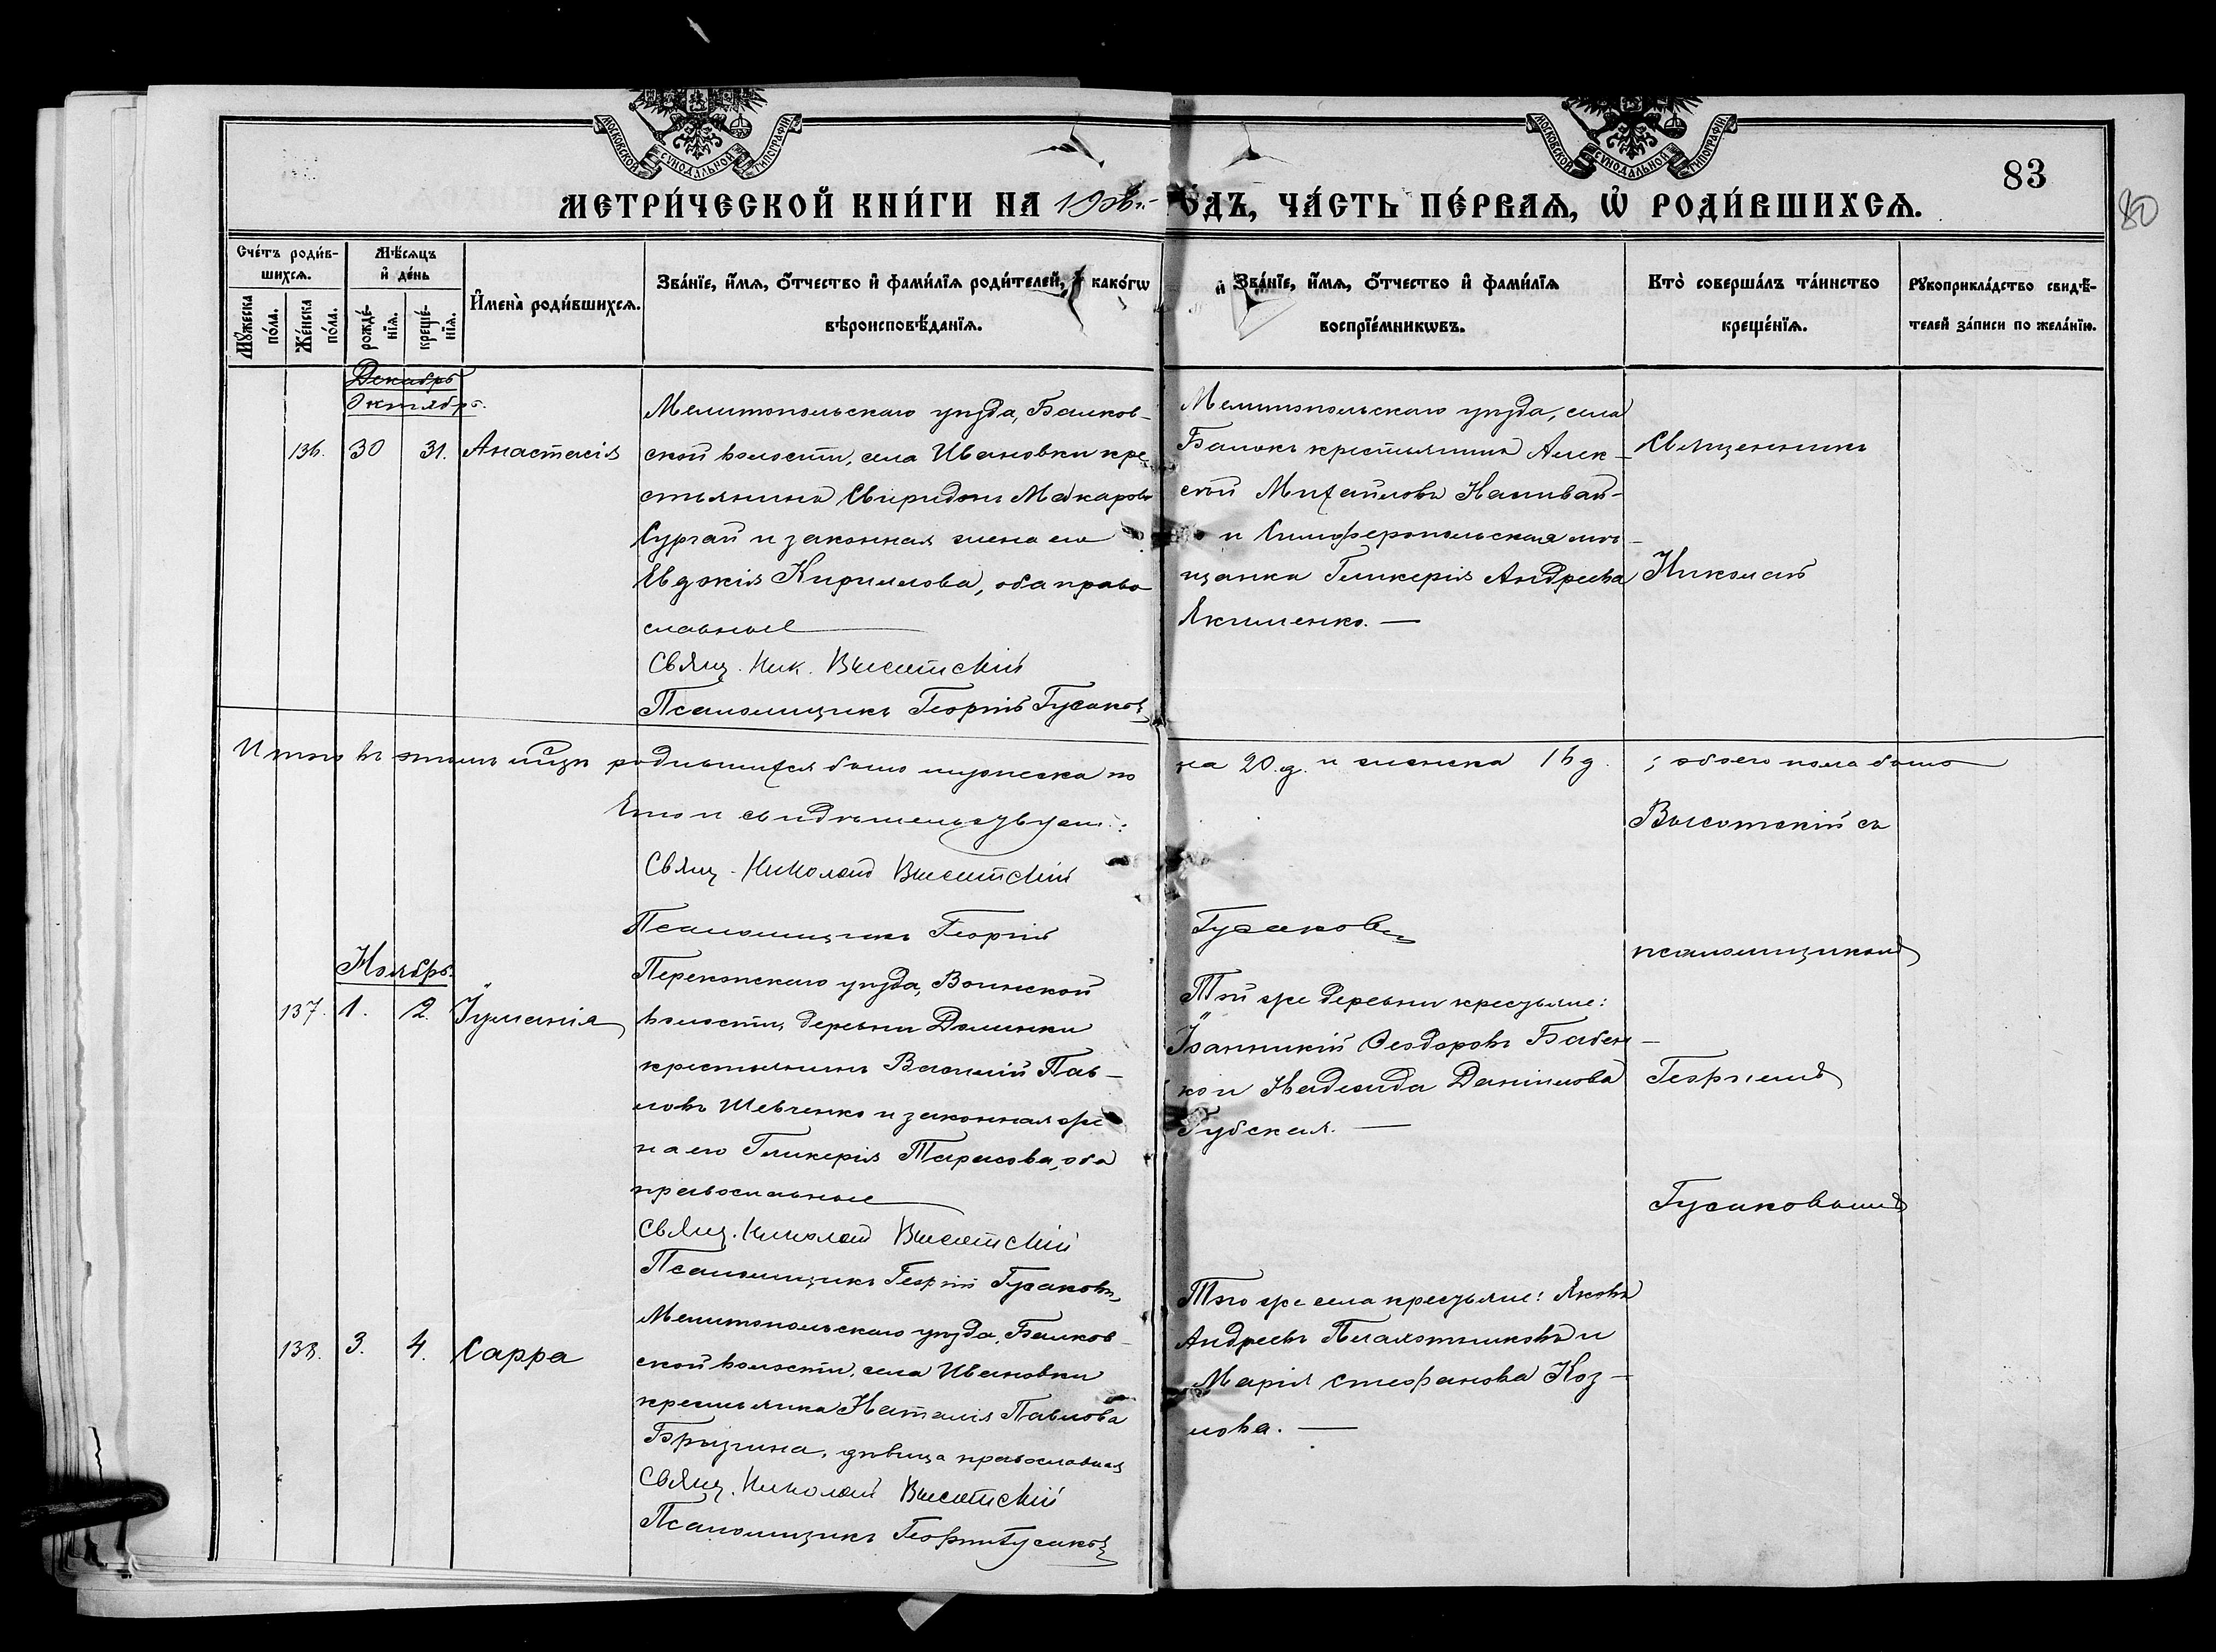 МОСКОВСКОЙ СѴНОДАЛЬНОЙ ТИПОГРАФІИ
МОСКОВСКОЙ СѴНОДАЛЬНОЙ ТИПОГРАФІИ
83
80
МЕТРИ́ЧЕСКОЙ КНИ́ГИ НА 190 ГО́ДЪ, ЧА́СТЬ ПЕ́РВАѦ, Ѡ҆ РОДИ́ВШИХСѦ.
Сче́тъ роди́в-
шихсѧ.
Мꙋ́жеска по́ла.
Же́нска по́ла.
Мѣ́сѧцъ
и҆ де́нь
рожде́-
нїѧ.
креще́-
нїѧ.
И҆мена̀ роди́вшихсѧ.
Зва́нїе, и҆́мѧ, ѻ҆́тчество и҆ фами́лїѧ роди́телей, и҆ како́гѡ
вѣроисповѣ́данїѧ.
Зва́нїе, и҆́мѧ, ѻ҆́тчество и҆ фами́лїѧ
воспрїе́мникѡвъ.
Кто̀ соверша́лъ та́инство
креще́нїѧ.
Рꙋкоприкла́дство свидѣ́-
телей за́писи по жела́нїю.
Декабрь
Октябрь.
136. 30 31. Анастасія
Мелитопольскаго уѣзда, Балков-
ской волости, села Ивановки кре
стьянинъ Свиридонъ Макаровъ
Сургай и законная жена его
Евдокія Кириллова, оба право
славные
Свящ. Ник. Высотскій
Псаломщикъ Георгій Гусаковъ
Мелитопольскаго уѣзда, села
Балокъ крестьянинъ Алек-
сѣй Михайловъ Наливай-
и Симферопольская мѣ-
щанка Гликерія Андреева
Якименко.
Священникъ
Николай
Итого въ этомъ мѣсяцѣ родившихся было мужеска по
ла 20. д. и женска 16 д. ; обоего пола было
Въ
свидѣтельствуемъ:
Свящ. Николай Высотскій
Псаломщикъ Георгій Гусаковъ
Высотскій съ
псаломщикомъ
Ноябрь.
137. 1. 2. Іуліанія
Перекопскаго уѣзда, Воинской
волости, деревни Долинки
крестьянинъ Василій Пав-
ловъ Шевченко и законная же
на его Гликерія Тарасова, оба
православные
Свящ. Николай Высотскій
Псаломщикъ Георгій Гусаковъ
Той же деревни крестьяне:
Іоанникій Ѳеодоровъ Бабен-
ко и Надежда Даніилова
Губская.
Георгіемъ
Гусаковымъ
138. 3. 4. Сарра
Мелитопольскаго уѣзда, Балков-
ской волости, села Ивановки
крестьянка Наталія Павлова
Брызгина, дѣвица православная
Свящ. Николай Высотскій
Псаломщикъ Георгій Гусаковъ
Того же села крестьяне: Яковъ
Андреевъ Плахотниковъ и
Марія Стефанова Коз-
лова.